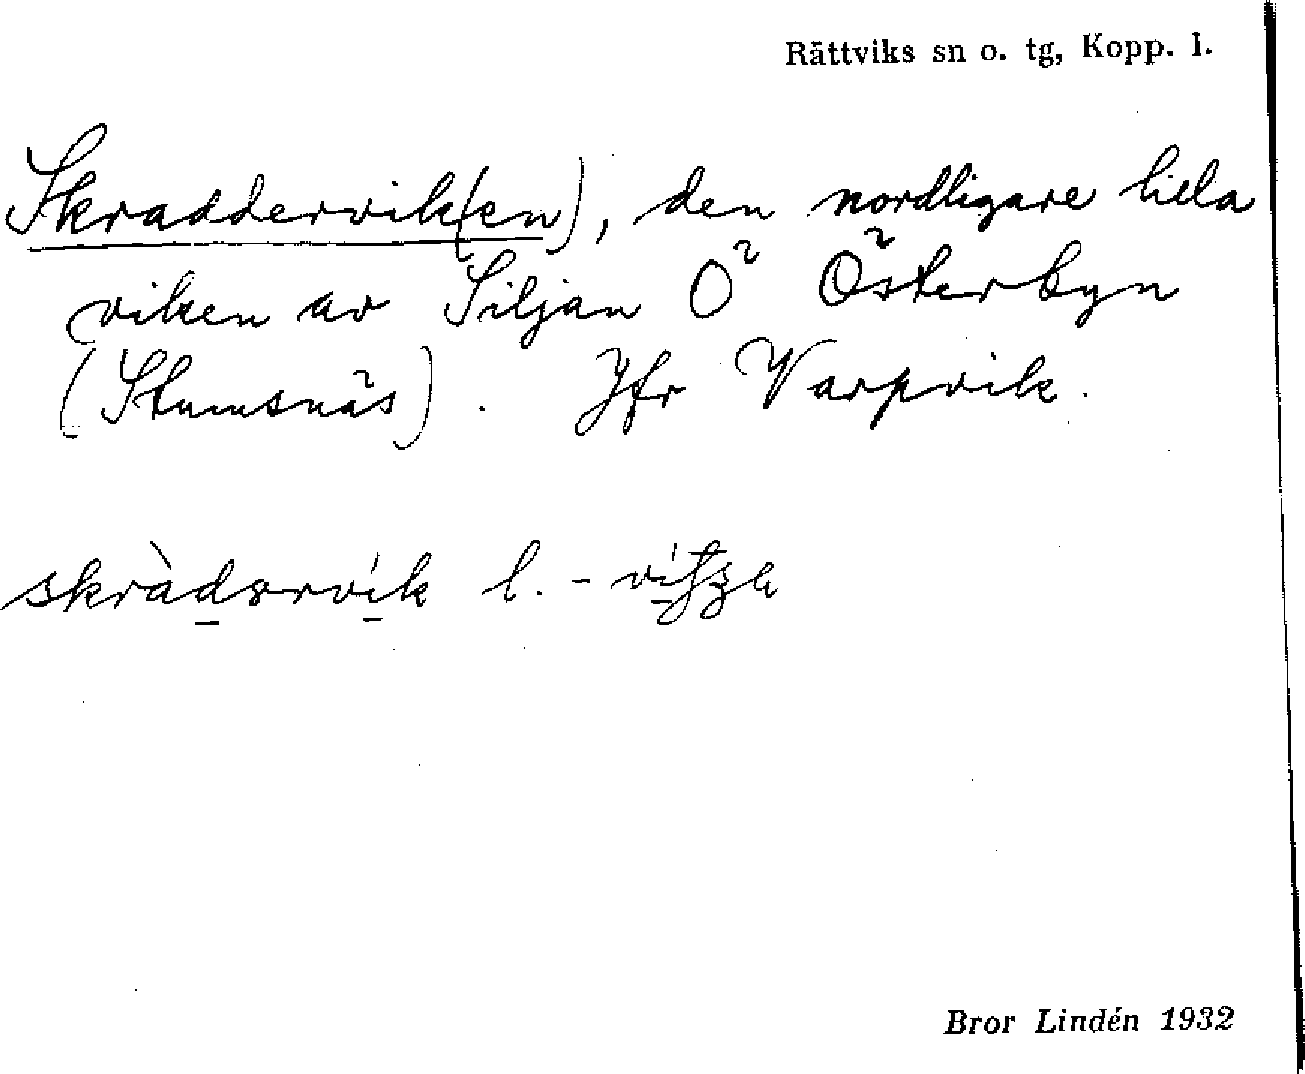 Rättviks sn o. tg, Kopp. l.
Skraddervik(en), den nordligare lilla
viken av Siljan Ö Österbyn
(Stumsnäs). Jfr Varpvik.
skràdərvík l. -
Bror Lindén 1932